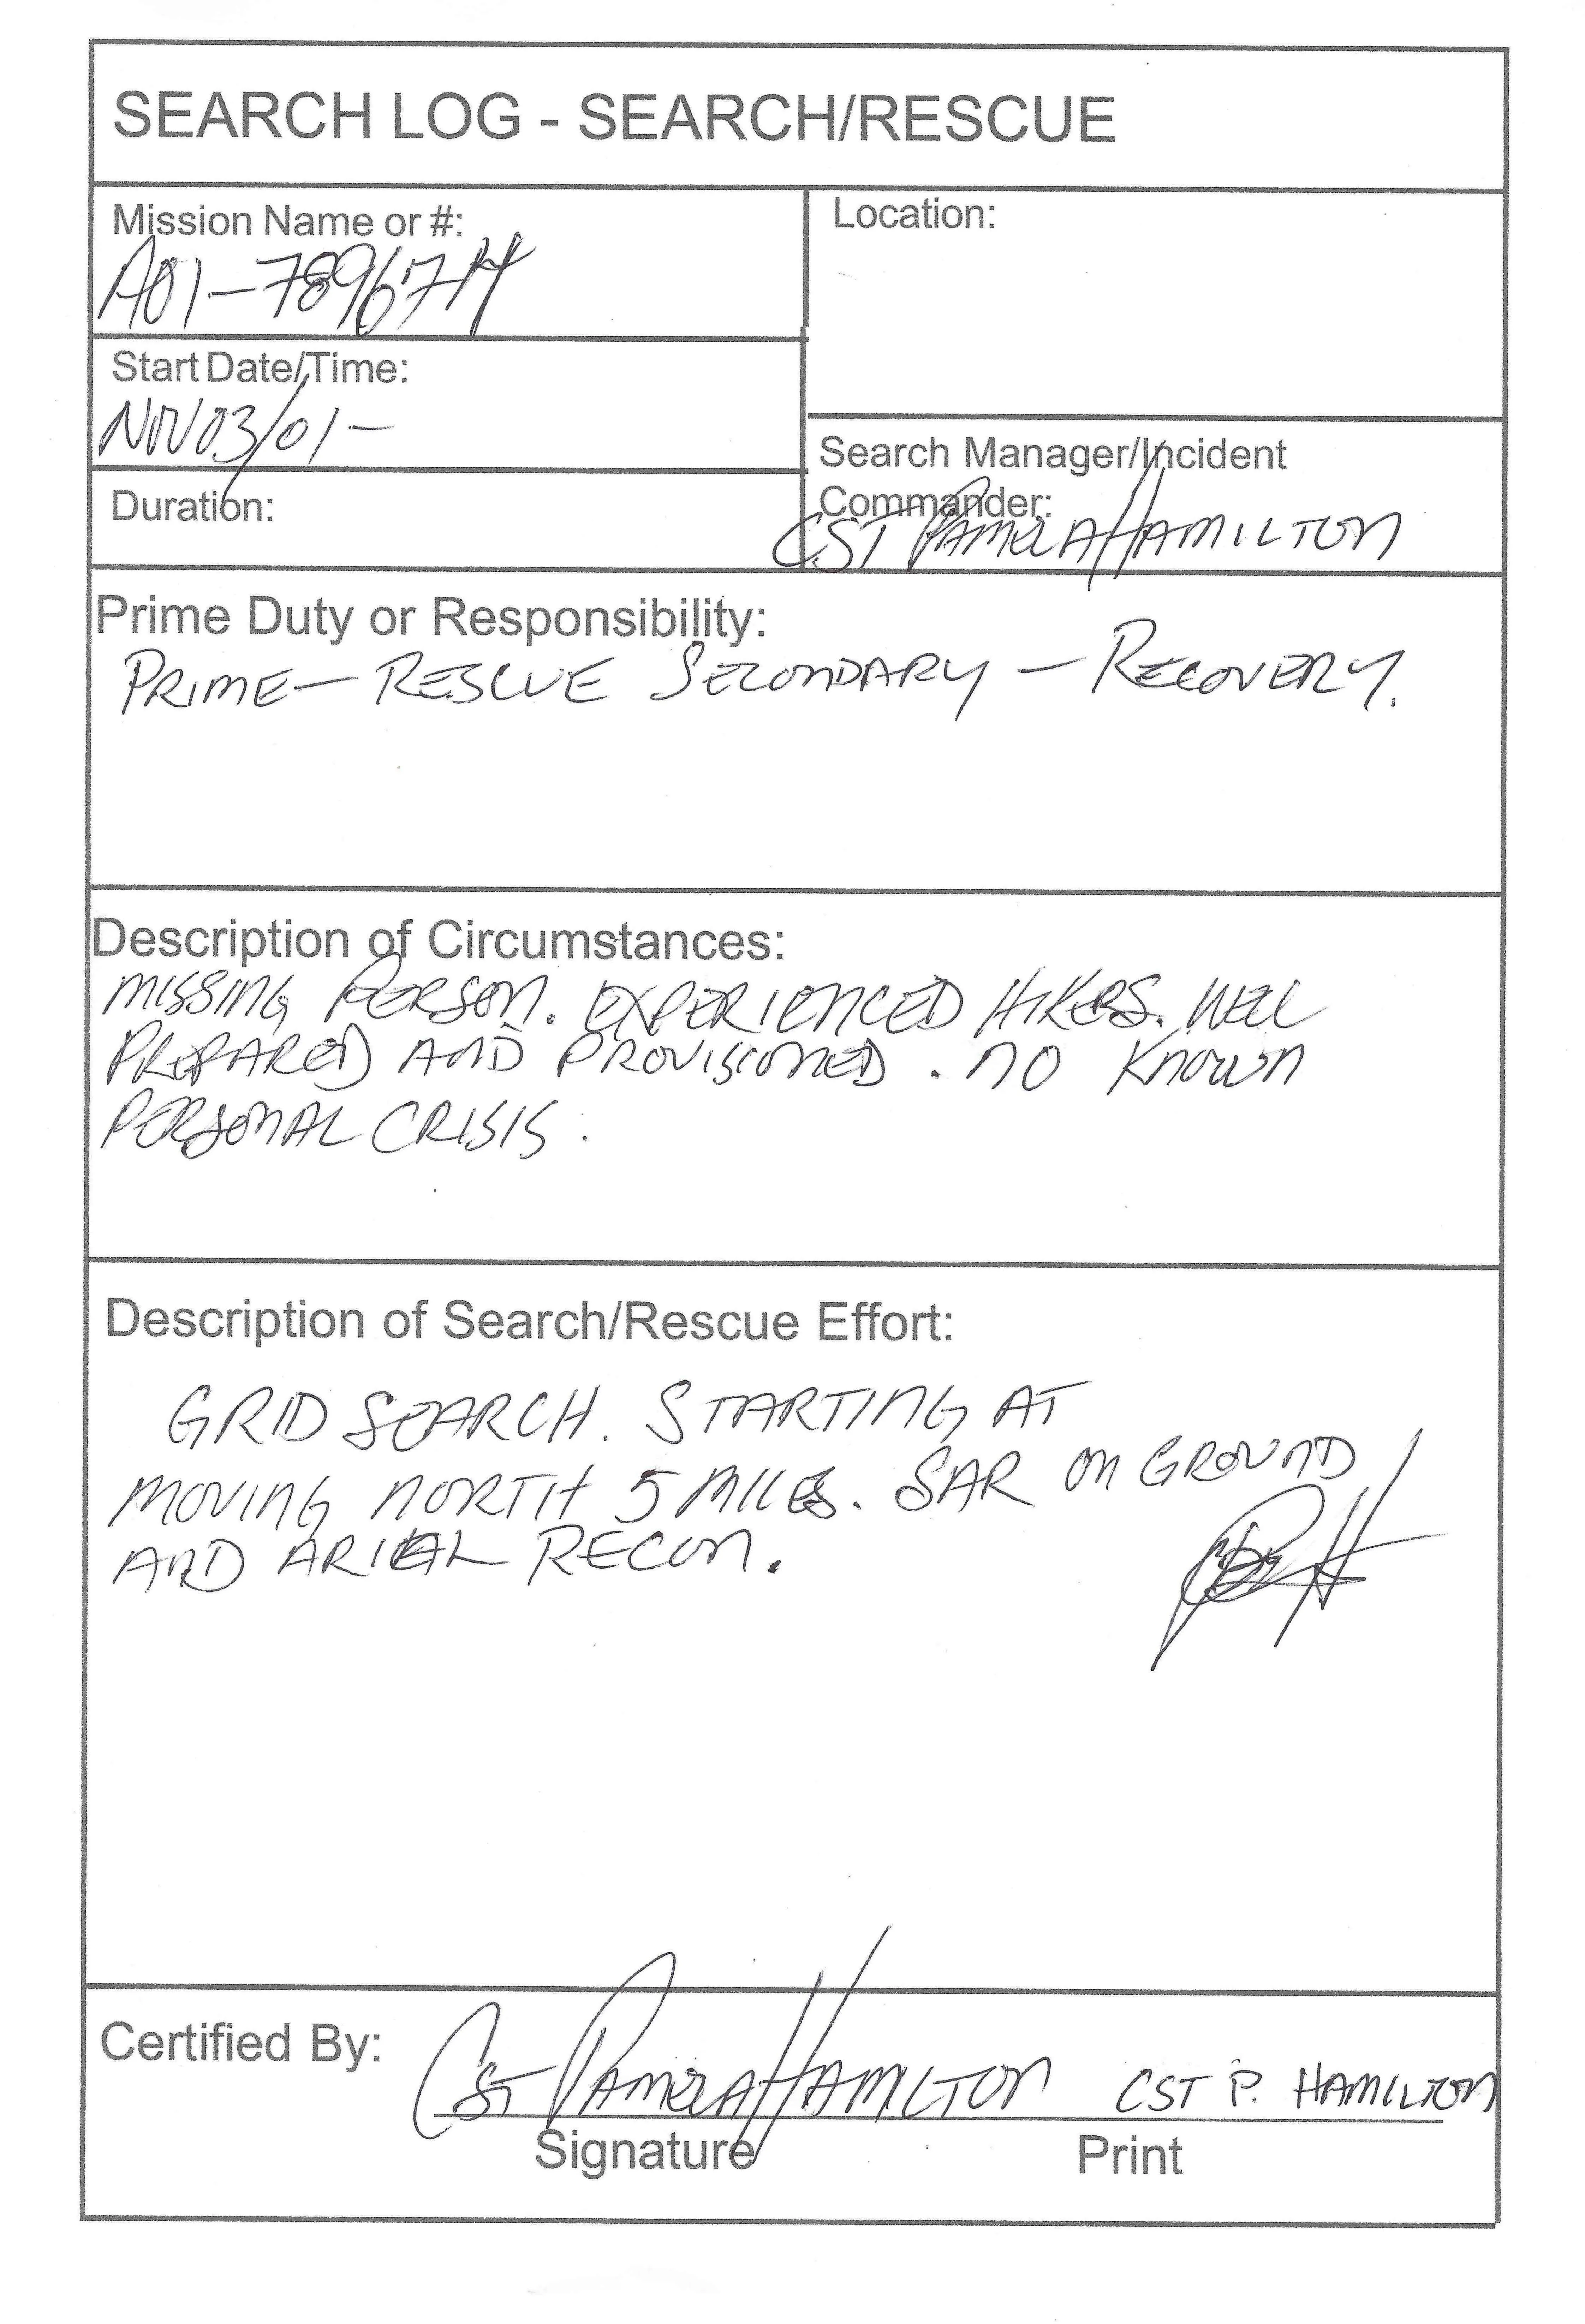 SEARCH LOG - SEARCH/RESCUE
Mission Name or #:
A01-789674
Location:
Start Date/Time:
NOV03/01-
Duration:
Search Manager/Incident
Commander:
CST PAMELA HAMILTON
Prime Duty or Responsibility:
PRIME - RESCUE SECONDARY - RECOVERY.
Description of Circumstances:
MISSING PERSON. EXPERIENCED HIKERS. WELL
PREPARED AND PROVISIONED. NO KNOWN
PERSONAL CRISIS.
Description of Search/Rescue Effort:
GRID SEARCH. STARTING AT
MOVING NORTH 5 MILES. SAR ON GROUND
AND ARIEAL RECON.
Certified By:
CST PAMELA HAMILTON CST P. HAMILTON
Signature Print